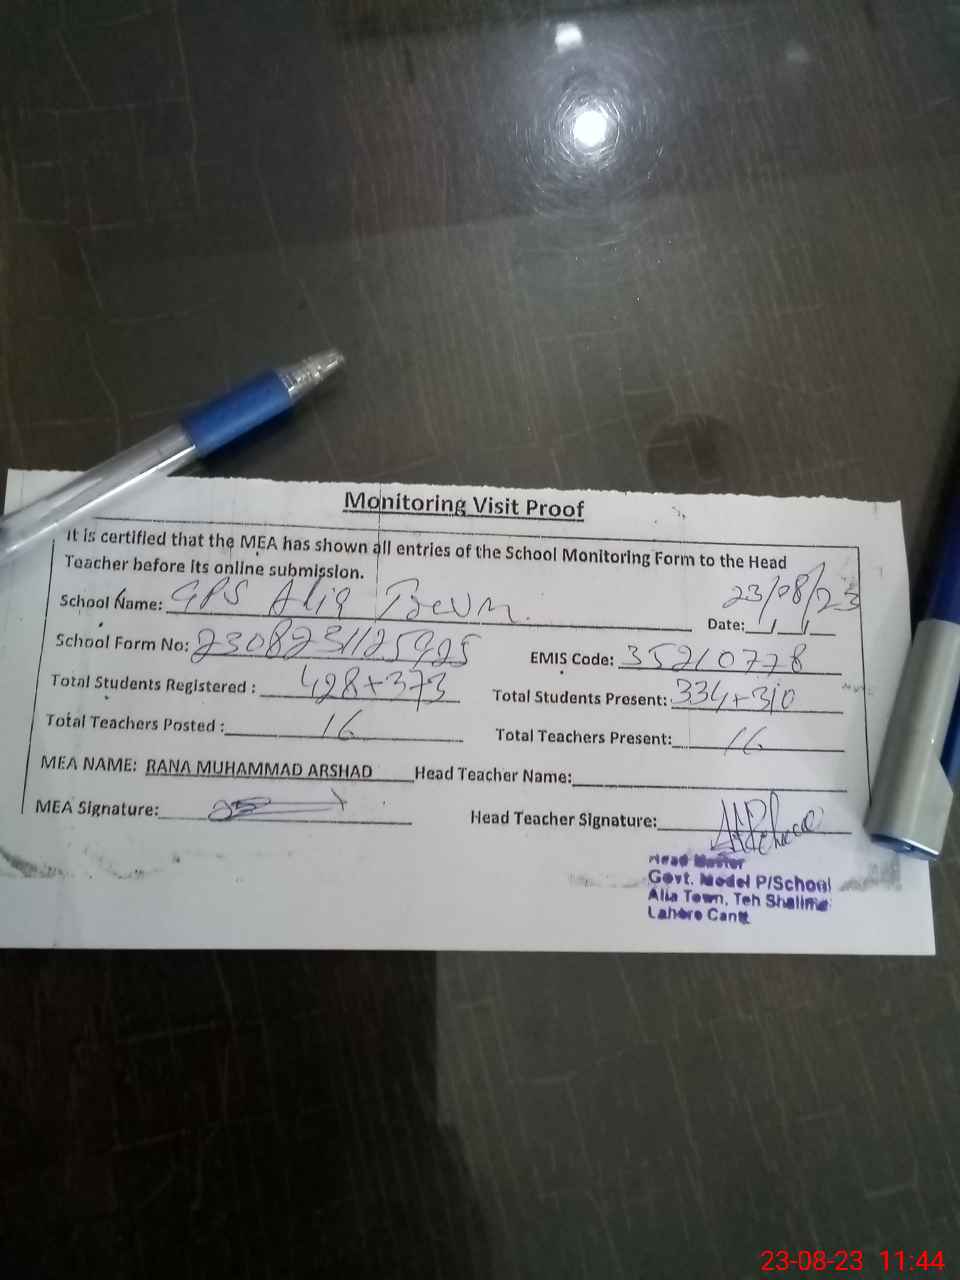 Monitoring Visit Proof
It is certified that the MEA has shown all entries of the School Monitoring Form to the Head
Teacher before its online submission.
School Name: GPS Alia Town
Date: 23/08/23
School Form No: 230823112592S
EMIS Code: 35210778
Total Students Registered : 428+373
Total Students Present: 334+310
Total Teachers Posted : 16
Total Teachers Present: 16
MEA NAME: RANA MUHAMMAD ARSHAD Head Teacher Name:
MEA Signature:
Head Teacher Signature:
Head Master
Govt. Model P/School
Alia Town, Teh Shalimar
Lahore Cantt
23-08-23 11:44